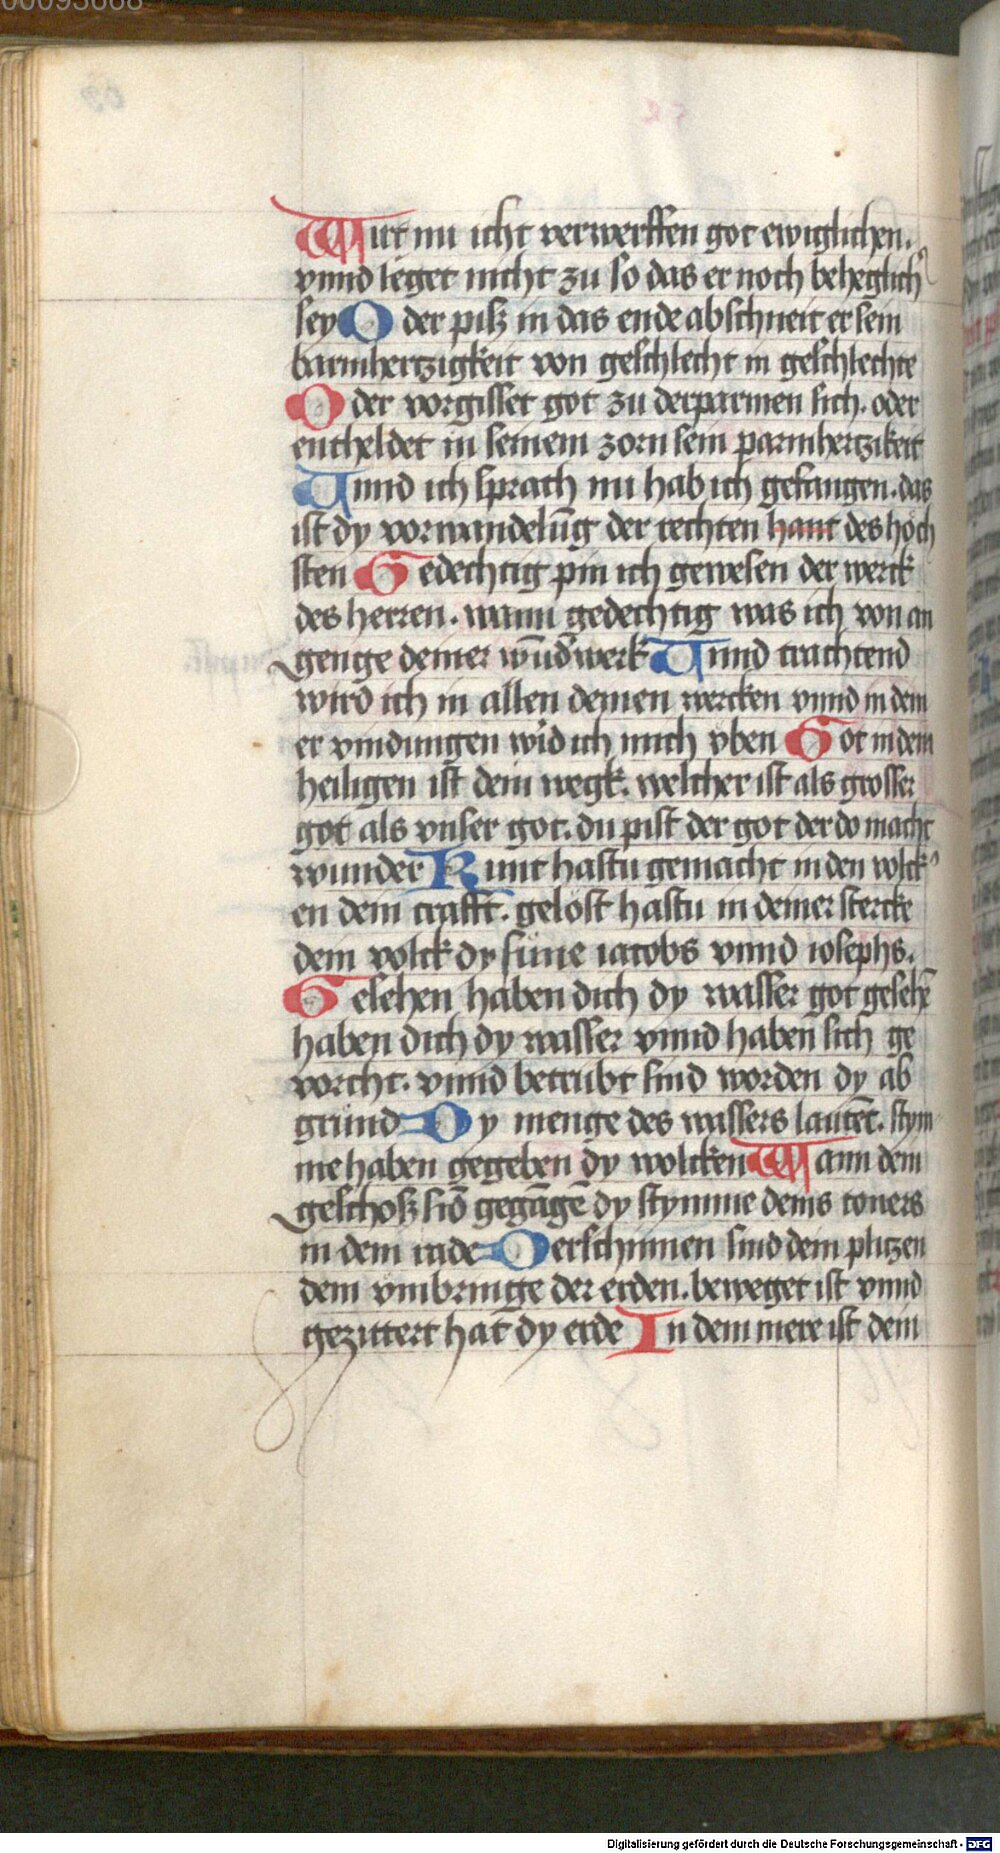 00093668
Wirt nu icht verwerffen got ewiglichen.
vnnd leget nicht zu so das er noch beheglich
sey Oder pisz in das ende abschneit er sein
barmhertzigkeit von geschlecht in geschlechte
Oder vorgisset got zu derparmen sich. oder
entheldet in seinem zorn sein parmhertzikeit
Vnnd ich sprach nu hab ich gefangen. das
ist dy vorwandelūg der rechten hant des höch
sten Gedechtig pin ich gewesen der werck
des herren. wann gedechtig was ich von an
genge deiner wūd̄werk Vnnd trachtend
wird ich in allen deinen wercken vnnd in dein
er vindungen wid ich mich vben Got in dem
heiligen ist dein wegk. welcher ist als grosser
got als vnser got. du pist der got der do macht
wunder Kunt hastu gemacht in den volck
en dein crafft. gelöst hastu in deiner stercke
dein volck dy süne iacobs vnnd iosephs.
Gesehen haben dich dy wasser got gesehē
haben dich dy wasser vnnd haben sich ge
vorcht. vnnd betrubt sind worden dy ab
grund Dy menge des wassers lautēt. stym
me haben gegeben dy wolcken Wann dein
geschosz sīd gegāgē dy stymme deins toners
in dem rade Derschinnen sind dein plitzen
dem vmbringe der erden. beweget ist vnnd
gezittert hat dy erde In dem mere ist dein
Digitalisierung gefördert durch die Deutsche Forschungsgemeinschaft - DFG